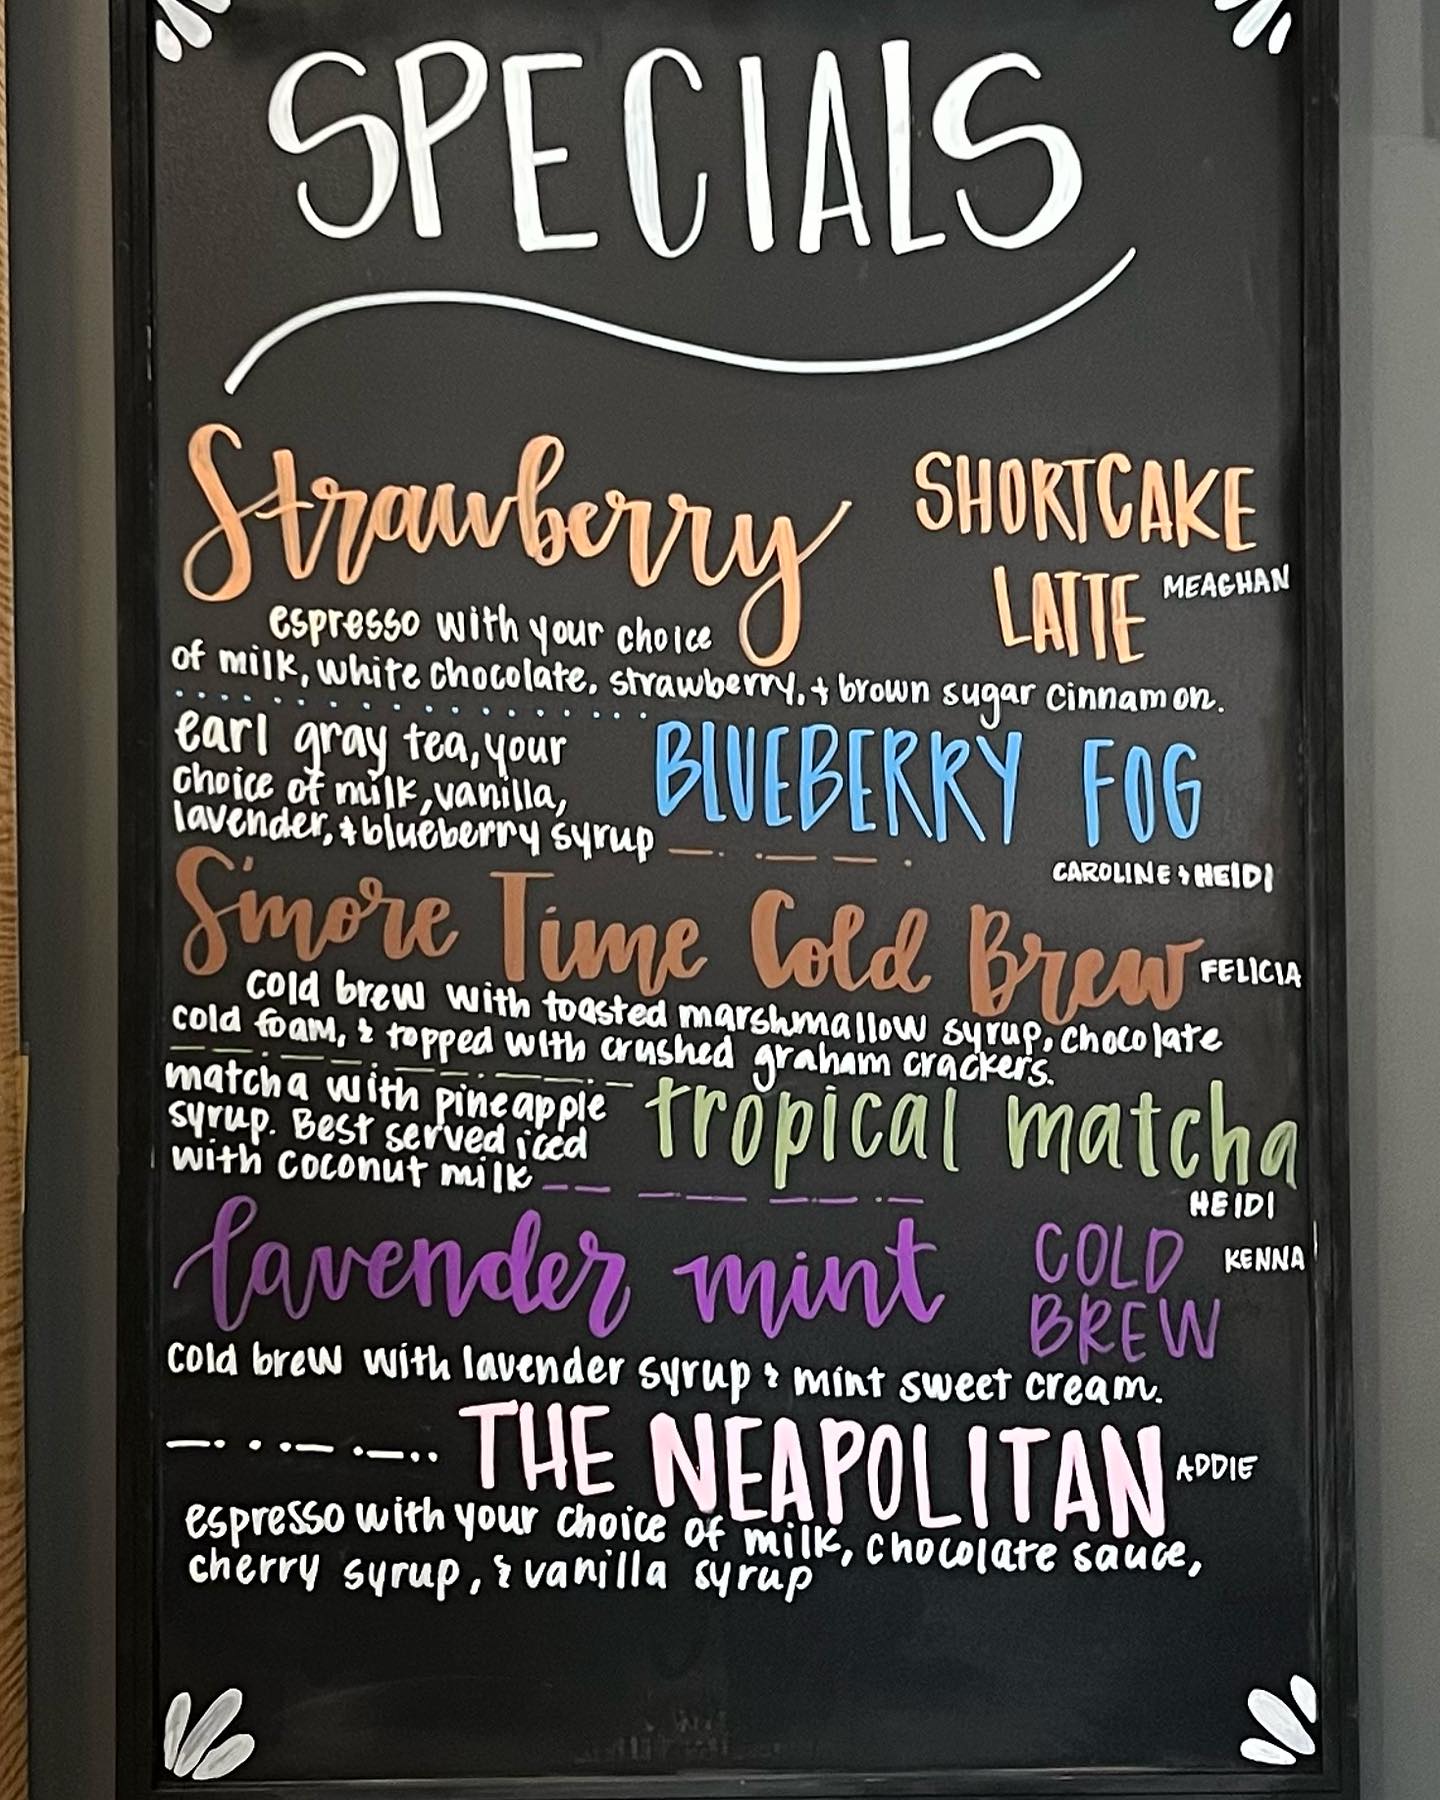 SPECIALS
Strawberry SHORTCAKE
LATTE MEAGHAN
espresso with your choice
of milk, white chocolate, strawberry, + brown sugar cinnamon.
earl gray tea, your
choice of milk, vanilla,
lavender, & blueberry syrup
BLUEBERRY FOG
CAROLINE & HEIDI
S'more Time Cold Brew FELICIA
cold brew with toasted marshmallow syrup, chocolate
cold foam, & topped with crushed graham crackers.
matcha with pineapple
syrup. Best served iced
with coconut milk
tropical matcha
HEIDI
lavender mint COLD
BREW
KENNA
cold brew with lavender syrup & mint sweet cream.
THE NEAPOLITAN ADDIE
espresso with your choice of milk, chocolate sauce,
cherry syrup, & vanilla syrup